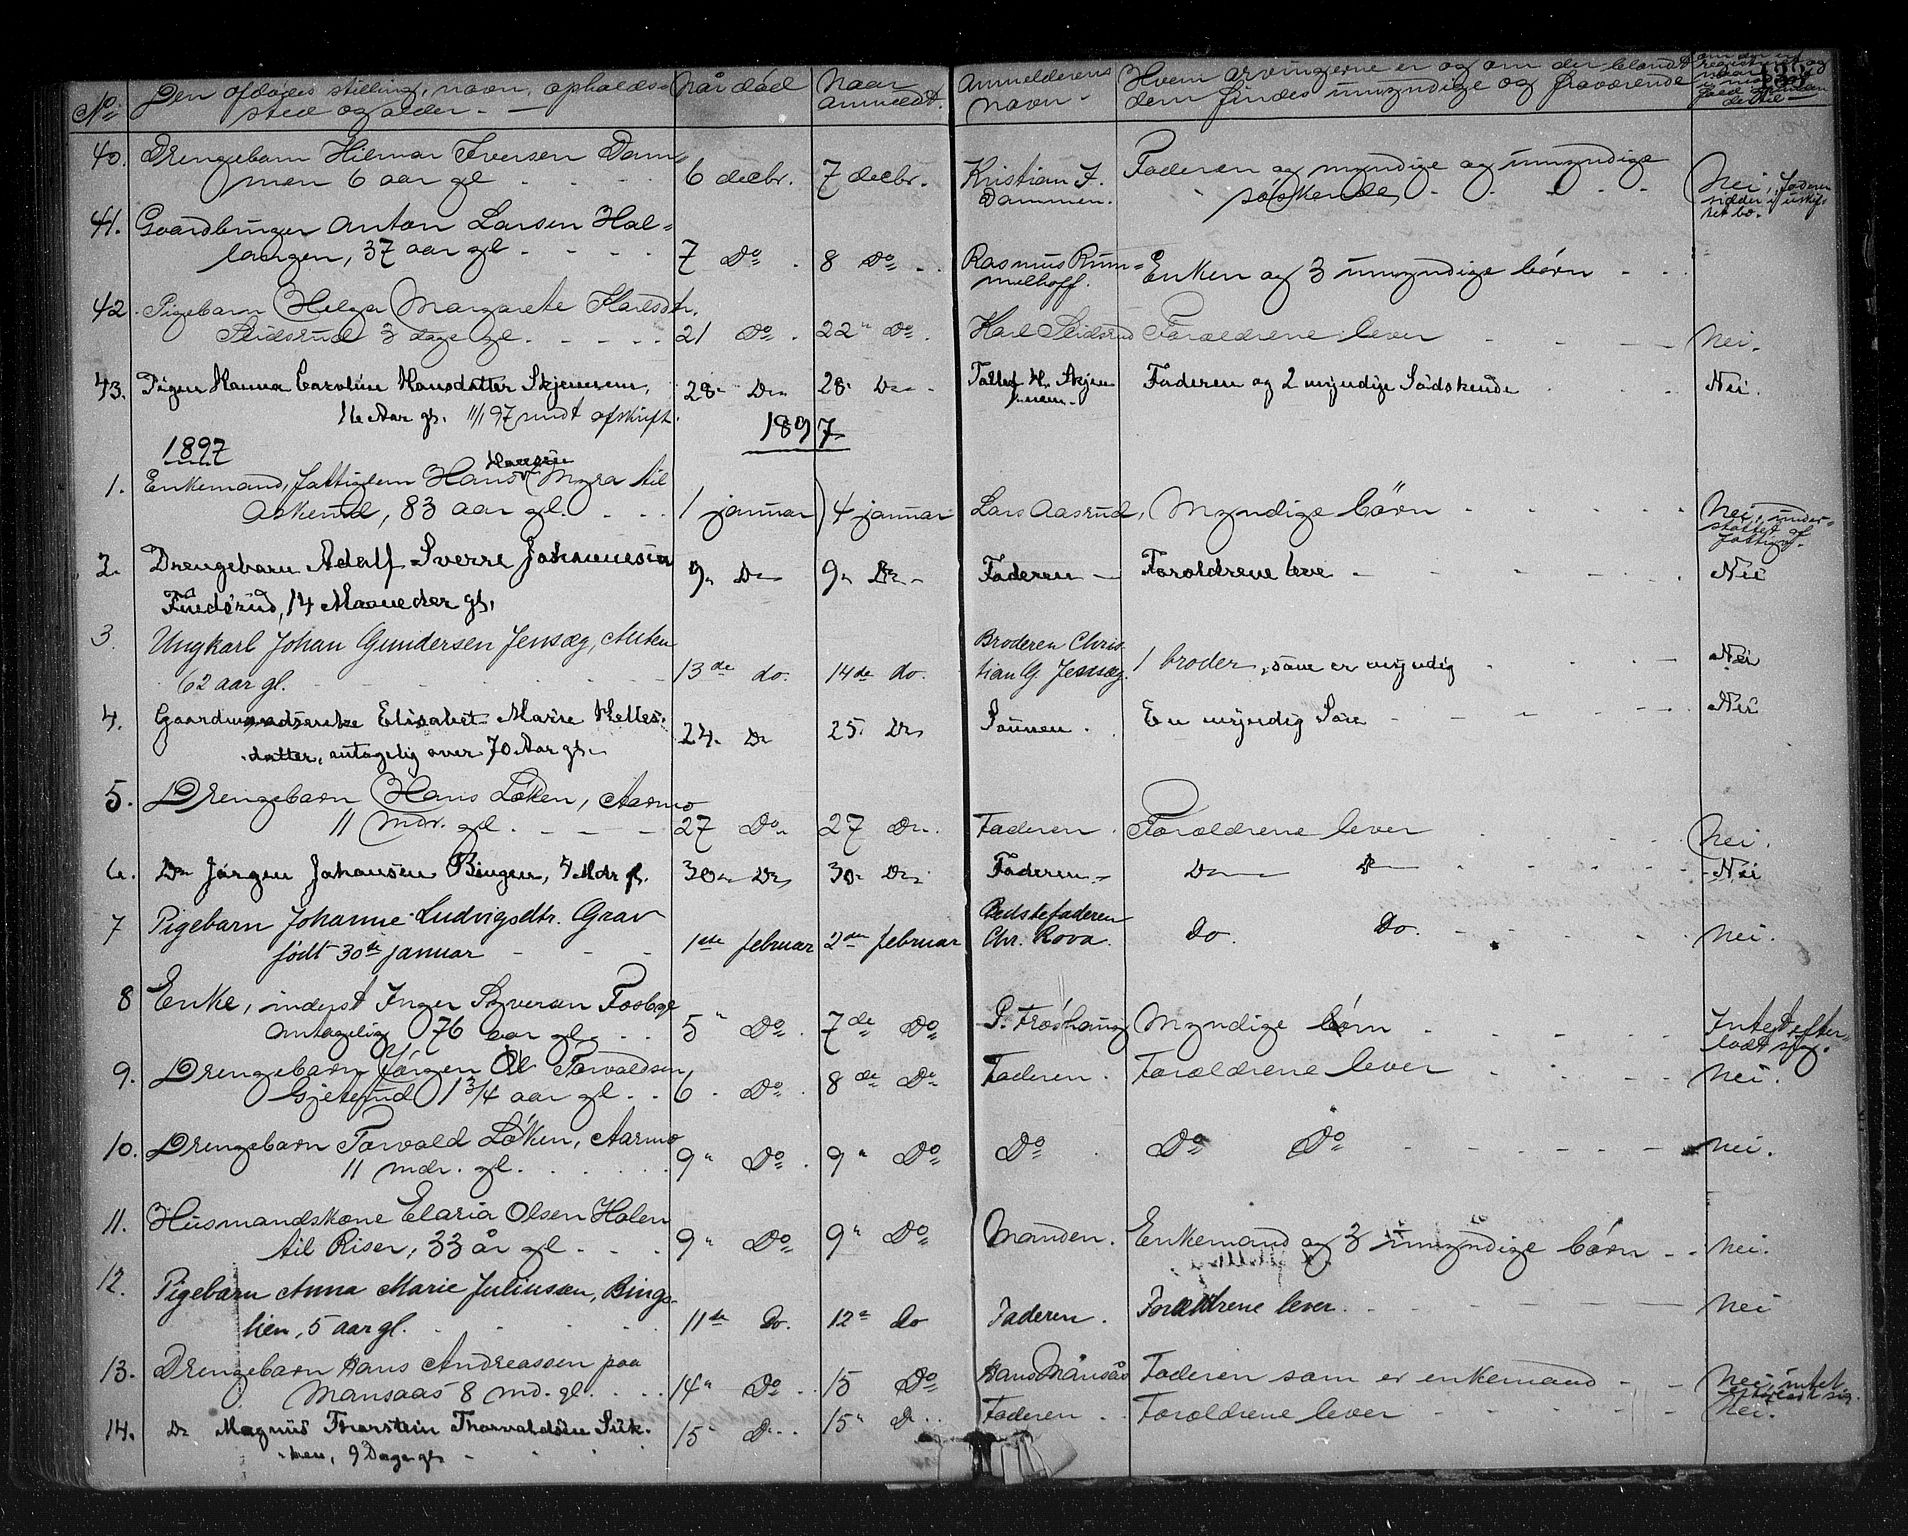 No. Den afdødes stilling, navn, opholds- Når död Naar Anmelderens Hvem arvingerne er og om der blandt
sted og alder. anmeldt. navn. dem findes umyndige og fraværende
40. Drengebarn Hilmar Iversen Dam-
men 6 aar gl 6 decbr. 7 decbr. Kristian I. Faderen og myndige og umyndige Nei, Faderen
Dammen. søskende sidder i uskif-
tet bo.
41. Gaardbruger Anton Larsen Hal-
langen, 37 aar gl 7 Do 8 Do Rasmus Rum- Enken og 3 umyndige børn
melhoff.
42. Pigebarn Helga Margarete Karlsdtr.
Skidsrud 3 dage gl. 21 Do. 22 Do. Karl Skidsrud Forældrene lever Nei.
43. Pigen Hanna Caroline Hansdatter Skjennem, 28 Do 28 Do Tollef H. Skjen Faderen og 2 myndige Södskende Nei.
16 Aar gl. 11/1 97 afskrift. nem.
1897
1897
1. Enkemand, fattiglem Hans Hansen Myra til
Askerud, 83 aar gl. 1 januar 4 januar Lars Aasrud, Myndige børn Nei, under-
støttet af
fattigv.
2. Drengebarn Adolf Sverre Johannesen 9 Do 9 Do Faderen Forældrene leve Nei
14 Maaneder gl.
3. Ungkarl Johan Gundersen Jensæg, Broderen Chris
62 aar gl. 13de do. 14de do. tian G. Jensæg. 1 broder, som er myndig Nei
4. Gaardmandsenke Elisabet Marie Helles-
datter, antagelig over 70 Aar gl. 24. Do 25. Do Sönnen. En myndig Sön Nei
5. Drengebarn Hans Løken, Aarmo
11 mdr. gl. 27 Do 27 Do. Faderen. Forældrene lever Nei.
6. Do Jörgen Johansen Bingen, 4 Mdr gl. 30 Do 30 Do Faderen Do Do Nei
7 Pigebarn Johanne Ludvigsdtr. Grav Bedstefaderen
födt 30te januar 1ste februar 2den februar Chr. Rova. Do. Do. Nei.
8 Enke, inderst Inger Syversen Fosbye
antagelig 76 aar gl. 5 Do. 7de Do P. Fröshaug Myndige børn Intet efter-
ladt sig.
9. Drengebarn Jørgen Ol Torvaldsen
Gjeterud 1 3/4 aar gl. 6 Do. 8de Do Faderen. Forældrene lever Nei.
10. Drengebarn Torvald Løken, Aarmo
11 mdr. gl. 9 Do. 9 Do Do Do Do Nei.
11. Husmandskone Elaria Olsen Holen
til Riser, 33 år gl 9 Do 9 Do Manden. Enkemand og 3 umyndige børn Nei.
12. Pigebarn Anna Marie Juliussen, Bings-
lien, 5 aar gl. 11te Do. 12te do Faderen. Forældrene lever. Nei
13. Drengebarn Hans Andreassen paa
Månsaas 8 md. gl. 14 Do 15 Do Hans Månsås Faderen som er enkemand Nei, intet
efterladt sig.
14. Do Magnus Thorstein Thorvaldsen Sik- 15 Do 15 D Faderen. Forældrene lever Nei.
ken, 9 Dage gl